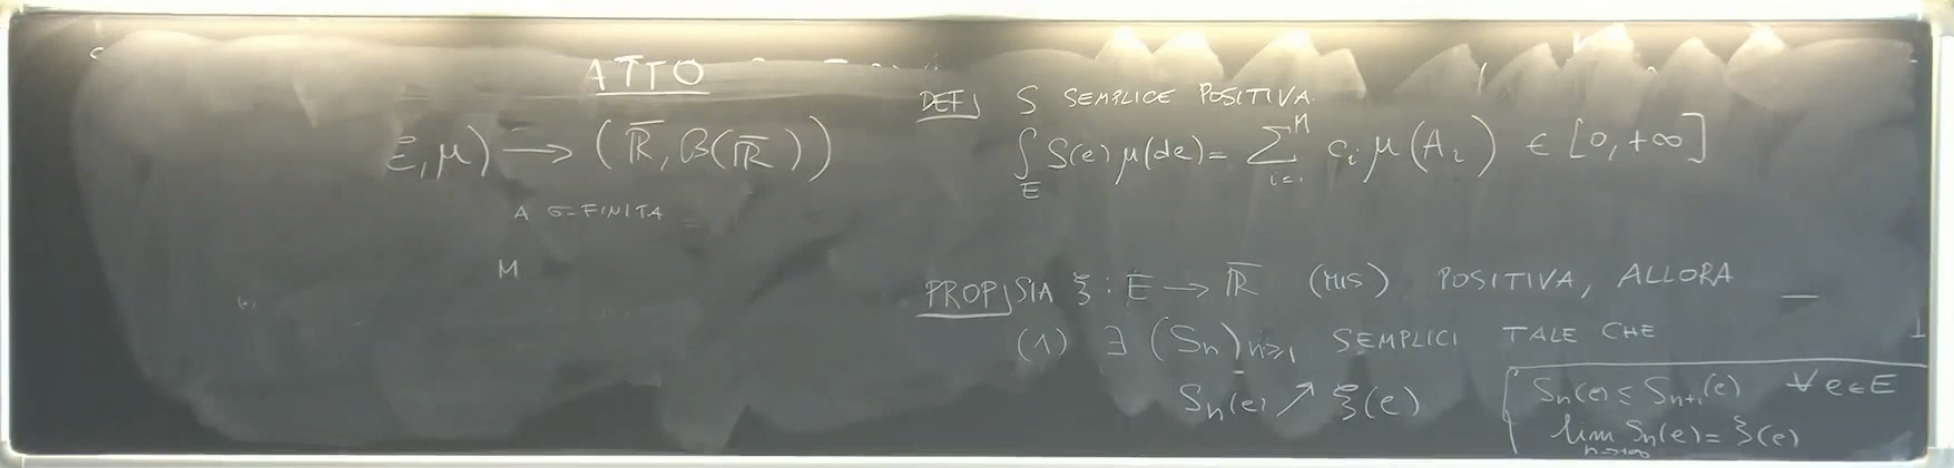 ATTO
E, μ) → (ℝ̅, B(ℝ̅))
A σ-FINITA
M
DEF) S SEMPLICE POSITIVA.
∫_E S(e) μ(de) = Σ_{i=1}^{M} c_i μ(A_i) ∈ [0, +∞]
PROP) SIA ξ : E → ℝ̅ (MIS) POSITIVA, ALLORA
(1) ∃ (S_n)_{n≥1} SEMPLICI TALE CHE
S_n(e) ↗ ξ(e)
S_n(e) ≤ S_{n+1}(e) ∀ e∈E
lim_{n→+∞} S_n(e) = ξ(e)